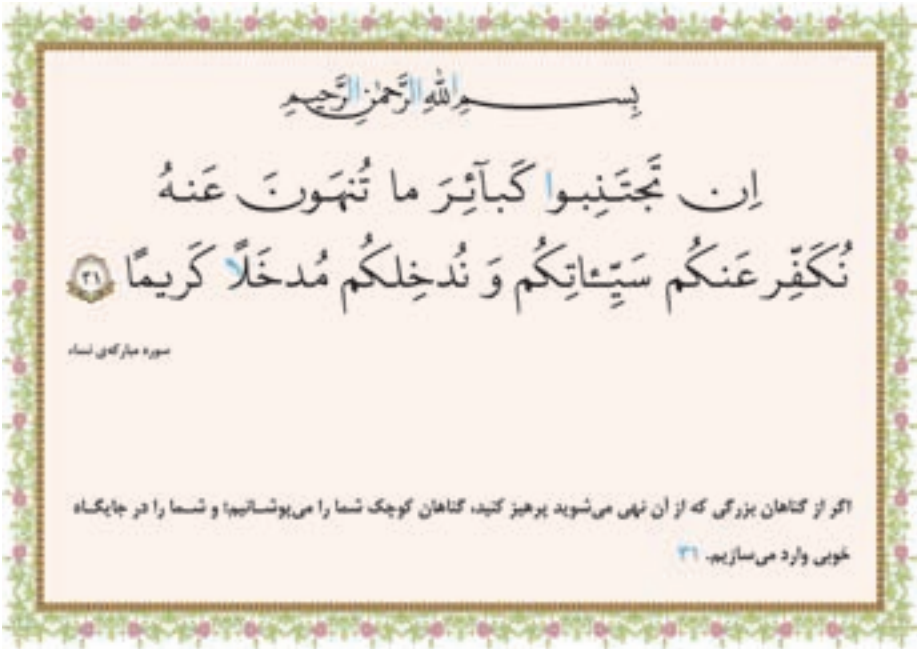 بِسـمِ اللهِ الرَّحمٰنِ الرَّحيمِ
اِن تَجتَنِبوا كَبآئِرَ ما تُنهَونَ عَنهُ
نُكَفِّر عَنكُم سَيِّـٔاتِكُم وَ نُدخِلكُم مُدخَلًا كَريمًا ٣١
سوره مبارکه‌ی نساء
اگر از گناهان بزرگی که از آن نهی می‌شوید پرهیز کنید، گناهان کوچک شما را می‌پوشـانیم؛ و شـما را در جایگـاه
خوبی وارد می‌سازیم. ۳۱